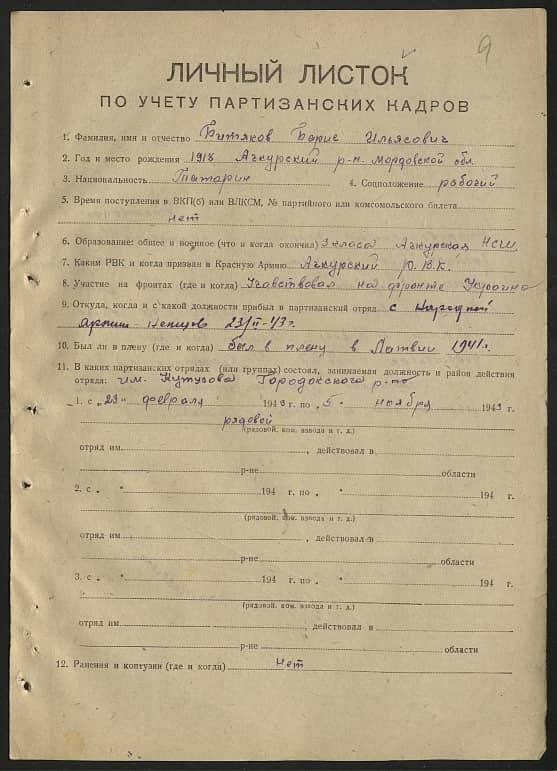 9
ЛИЧНЫЙ ЛИСТОК
ПО УЧЕТУ ПАРТИЗАНСКИХ КАДРОВ
1. Фамилия, имя и отчество Битяков Борис Ильясович
2. Год и место рождения 1918 Ачкурский р-н. Мордовской обл.
3. Национальность Татарин 4. Соцположение рабочий
5. Время поступления в ВКП(б) или ВЛКСМ, № партийного или комсомольского билета
нет
6. Образование: общее и военное (что и когда окончил) 3 класа Ачкурская НСШ
7. Каким РВК и когда призван в Красную Армию Ачкурский Р.В.К.
8. Участие на фронтах (где и когда) Учавствовал на фронте Украина
9. Откуда, когда и с какой должности прибыл в партизанский отряд с Народной
армии немцов 23/II-43г.
10. Был ли в плену (где и когда) был в плену в Латвии 1941г.
11. В каких партизанских отрядах (или группах) состоял, занимаемая должность и район действия
отряда: им. Кутузова Городокского р-на
1. с „23" февраля 1943 г. по „5" ноября 1943 г.
рядовой
(рядовой, ком. взвода и т. д.)
отряд им. , действовал в
р-не области
2. с „ " 194 г. по „ " 194 г.
(рядовой, ком. взвода и т. д.)
отряд им. , действовал в
р-не области
3. с „ " 194 г. по „ " 194 г.
(рядовой, ком. взвода и т. д.)
отряд им. , действовал в
р-не области
12. Ранения и контузии (где и когда) нет